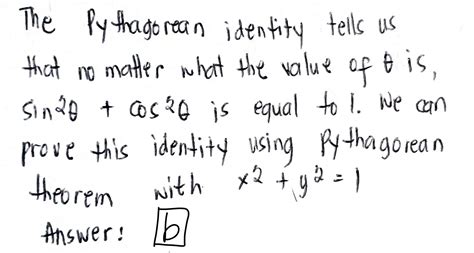 The Pythagorean identity tells us
that no matter what the value of θ is,
sin²θ + cos²θ is equal to 1. We can
prove this identity using Pythagorean
theorem with x² + y² = 1
Answer: b